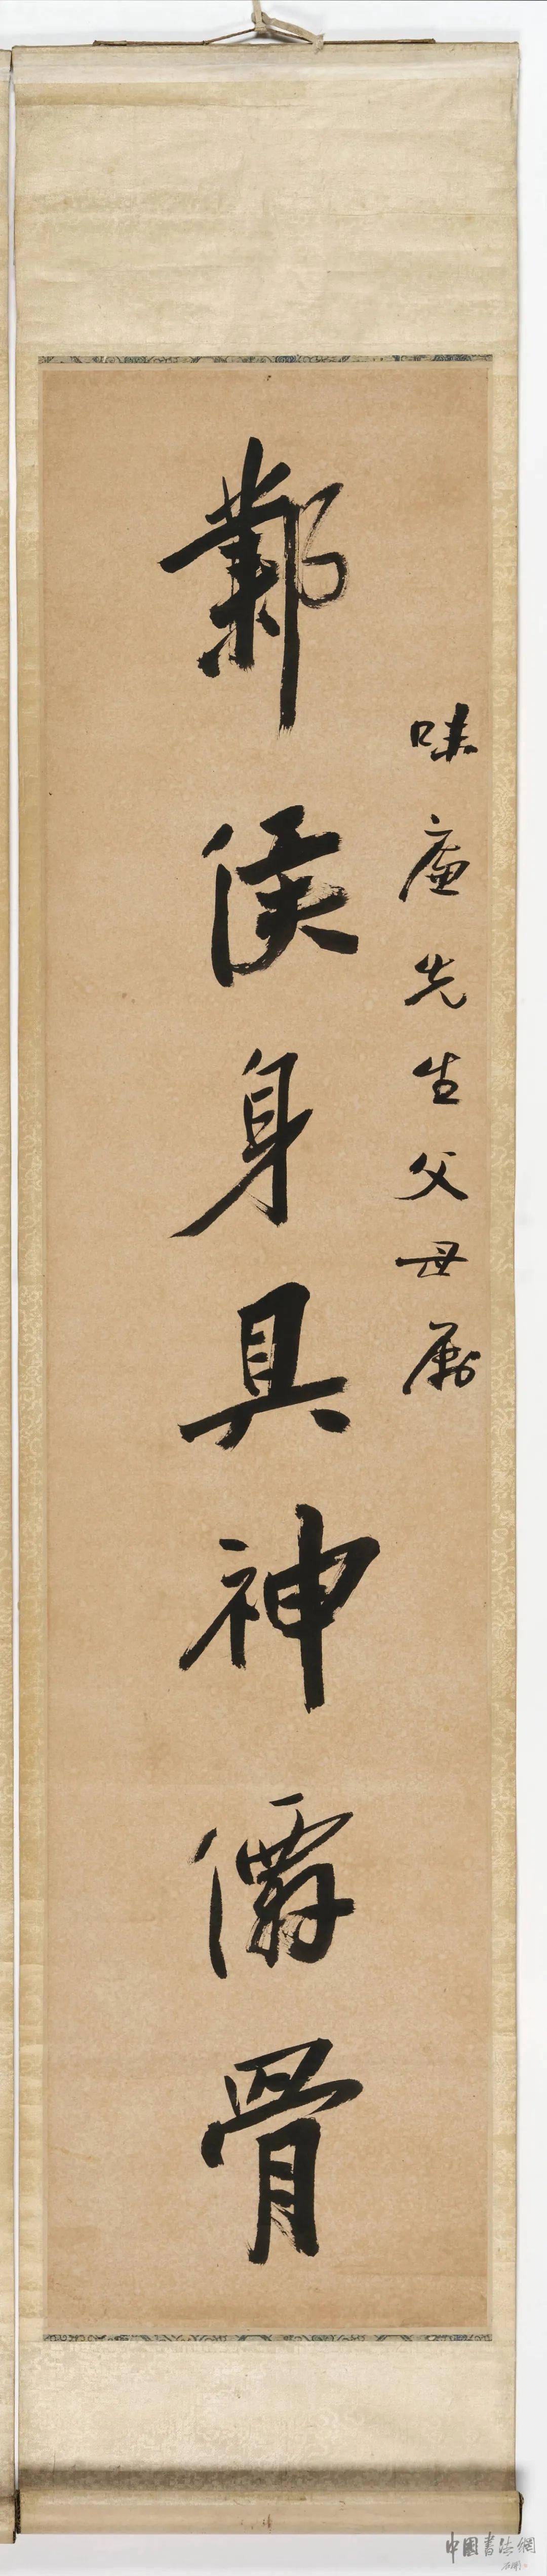 味庵先生父母屬
鄴侯身具神僊骨
中國書法網